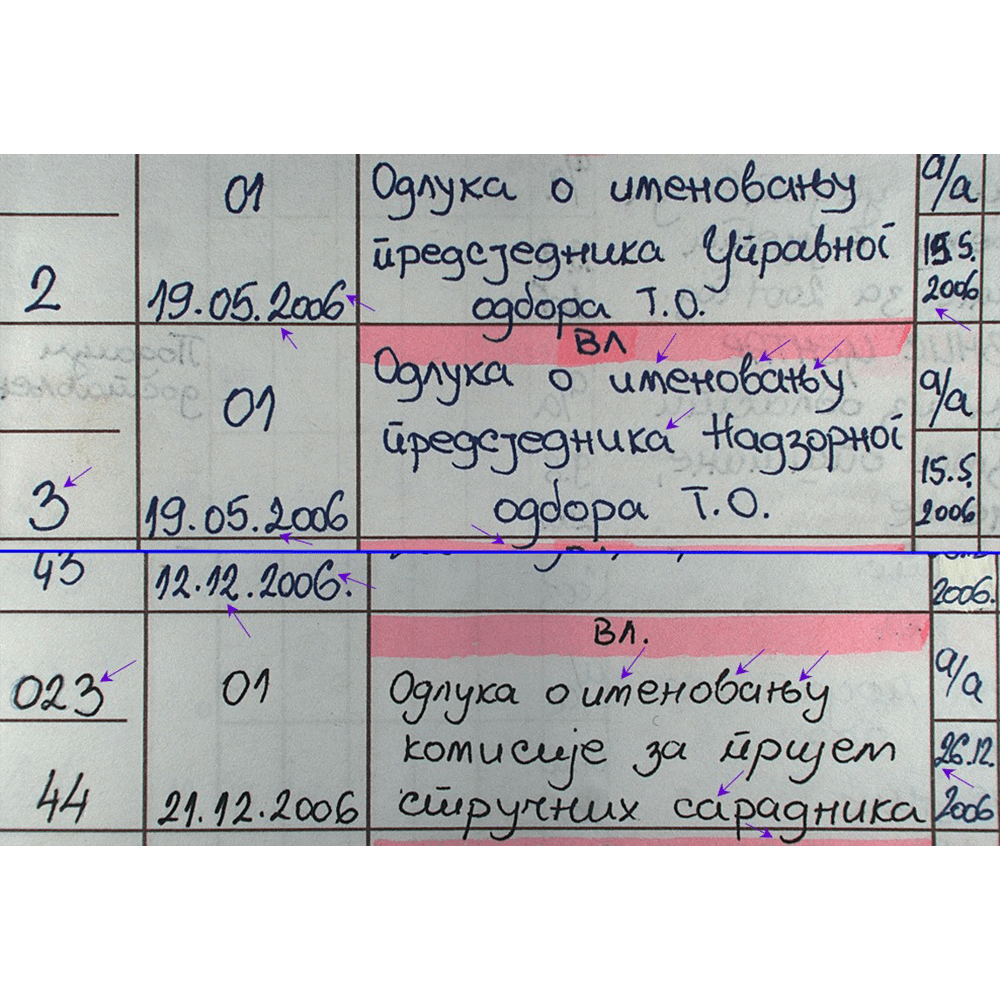 01
Одлука о именовању
а/а
предсједника Управног
2
19.05.2006
одбора Т.О.
15.5.
2006
Вл
01
Одлука о именовању
а/а
предсједника Надзорног
3
19.05.2006
одбора Т.О.
15.5.
2006
43
12.12.2006.
2006.
Вл.
023
01
Одлука о именовању
а/а
комисије за пријем
44
21.12.2006
стручних сарадника
26.12.
2006